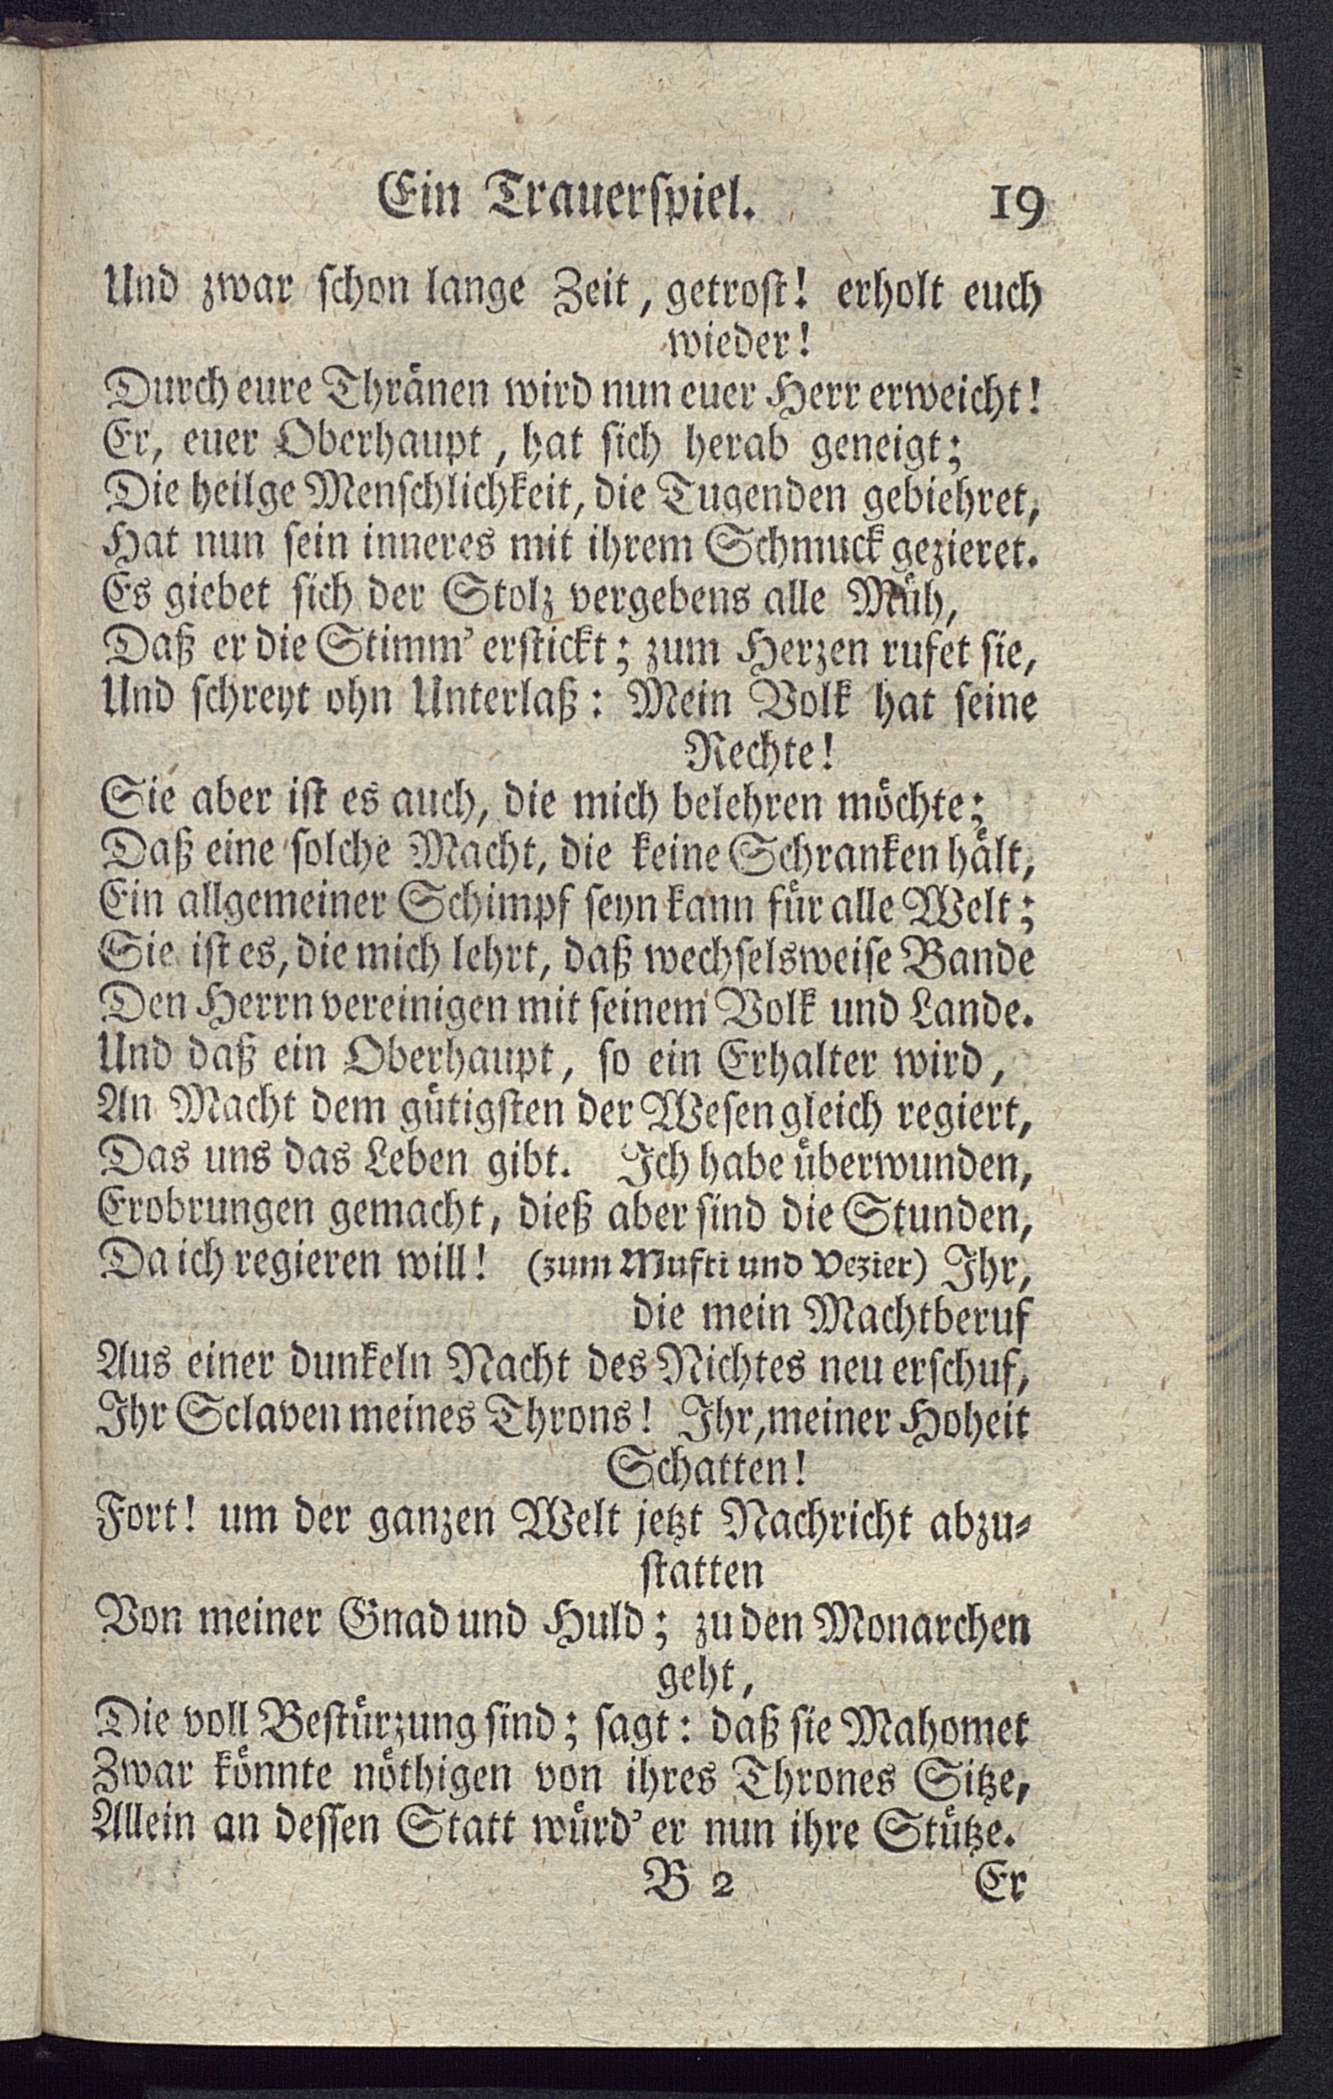 Ein Trauerspiel. 19
Und zwar schon lange Zeit, getrost! erholt euch
wieder!
Durch eure Thränen wird nun euer Herr erweicht!
Er, euer Oberhaupt, hat sich herab geneigt;
Die heilge Menschlichkeit, die Tugenden gebiehret,
Hat nun sein inneres mit ihrem Schmuck gezieret.
Es giebet sich der Stolz vergebens alle Müh,
Daß er die Stimm' erstickt; zum Herzen rufet sie,
Und schreyt ohn Unterlaß: Mein Volk hat seine
Rechte!
Sie aber ist es auch, die mich belehren möchte;
Daß eine solche Macht, die keine Schranken hält,
Ein allgemeiner Schimpf seyn kann für alle Welt;
Sie ist es, die mich lehrt, daß wechselsweise Bande
Den Herrn vereinigen mit seinem Volk und Lande.
Und daß ein Oberhaupt, so ein Erhalter wird,
An Macht dem gütigsten der Wesen gleich regiert,
Das uns das Leben gibt. Ich habe überwunden,
Erobrungen gemacht, dieß aber sind die Stunden,
Da ich regieren will! (zum Mufti und Vezier) Ihr,
die mein Machtberuf
Aus einer dunkeln Nacht des Nichtes neu erschuf,
Ihr Sclaven meines Throns! Ihr, meiner Hoheit
Schatten!
Fort! um der ganzen Welt jetzt Nachricht abzu-
statten
Von meiner Gnad und Huld; zu den Monarchen
geht,
Die voll Bestürzung sind; sagt: daß sie Mahomet
Zwar könnte nöthigen von ihres Thrones Sitze,
Allein an dessen Statt würd' er nun ihre Stütze.
B 2 Er